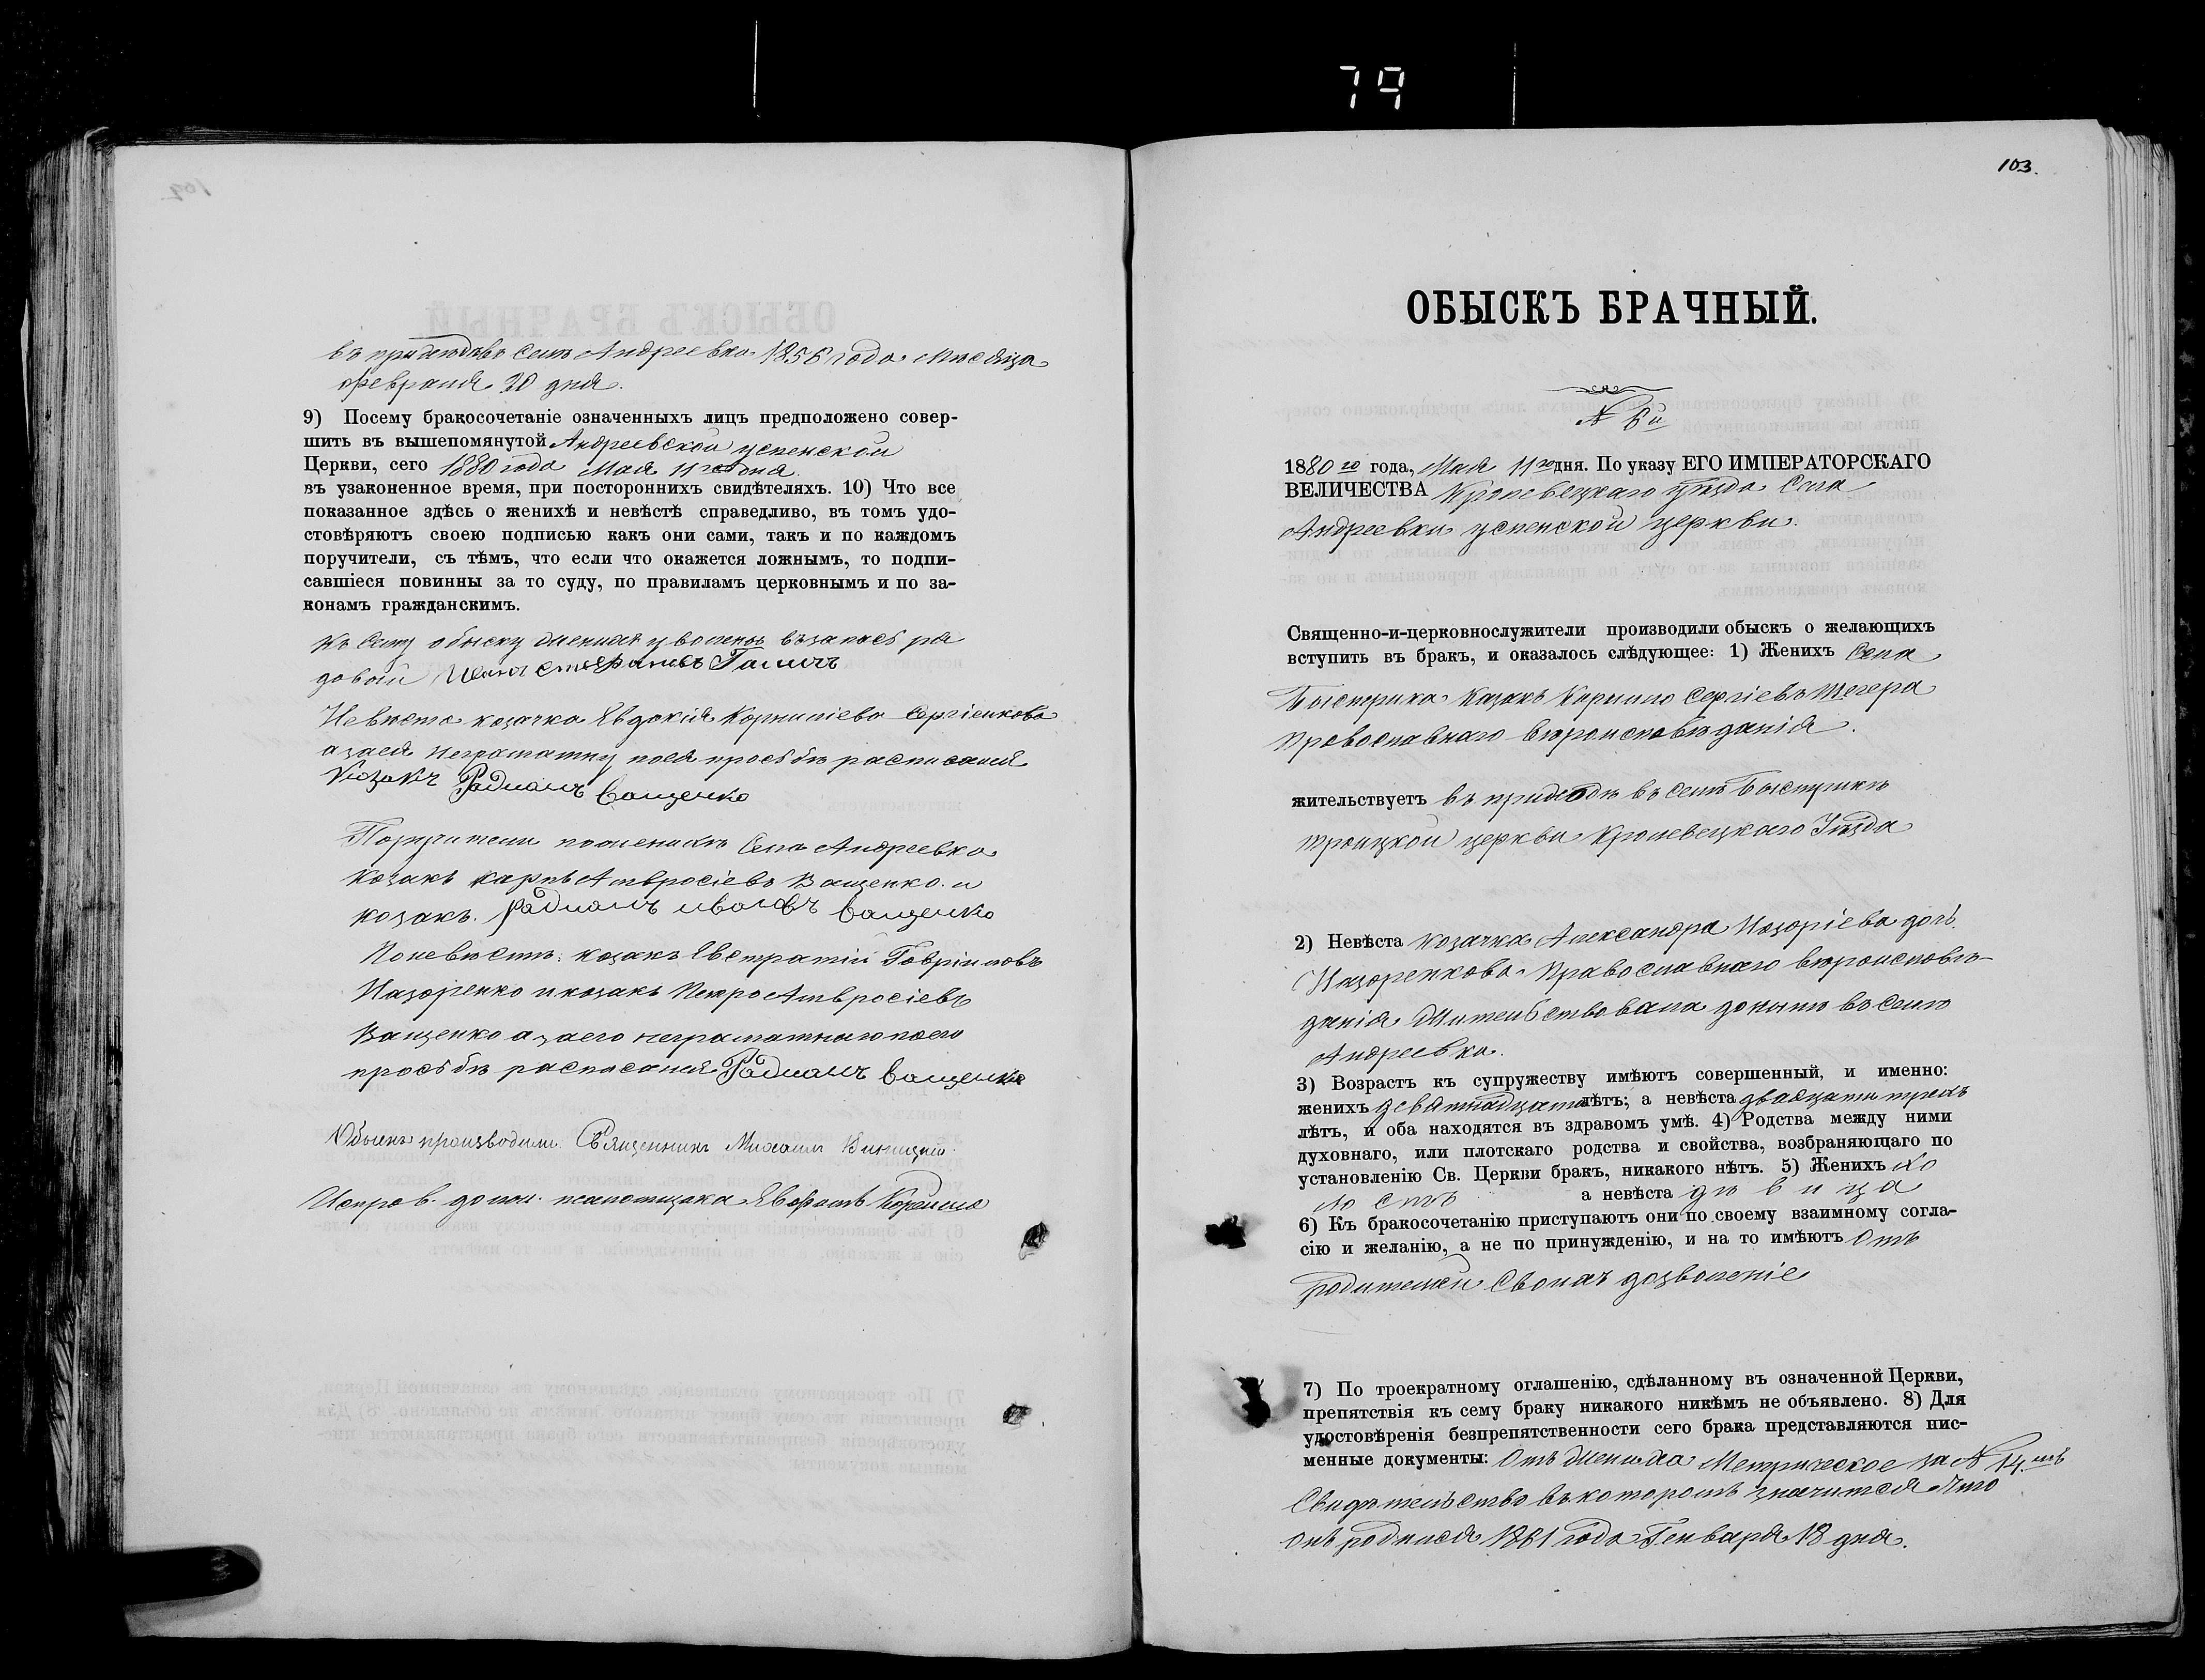 79
въ приходѣ въ селѣ Андреевка 1856 года Мѣсяца
Февраля 20 дня.
9) Посему бракосочетаніе означенныхъ лицъ предположено совер-
шить въ вышепомянутой Андреевской успенской
Церкви, сего 1880 года Мая 11го дня
въ узаконенное время, при постороннихъ свидѣтеляхъ. 10) Что все
показанное здѣсь о женихѣ и невѣстѣ справедливо, въ томъ удо-
стовѣряютъ своею подписью какъ они сами, такъ и по каждомъ
поручители, съ тѣмъ, что если что окажется ложнымъ, то подпи-
савшіеся повинны за то суду, по правиламъ церковнымъ и по за-
конамъ гражданскимъ.
Къ сему обыску женихъ уволены въ запасъ ря
довой Иванъ
Невѣста козачка Евдокія Корниліева Сергіенкова
а за ея неграмотну по ея прозбѣ расписался
Козакъ Радионъ Ващенко
Поручители по женихѣ Села Андреевка
Козакъ Карпъ Амвросіевъ Ващенко и
козакъ Радионъ ивановъ Ващенко
По невѣстѣ: козакъ Евстратій Гавріиловъ
Назаренко и козакъ Петро Амвросіевъ
Ващенко а за его неграматнаго по его
прозбѣ расписался Радионъ Ващенко
Обыскъ производили Священникъ Михаилъ
Исправ. долж. псаломщика
103.
ОБЫСКЪ БРАЧНЫЙ.
№ 6й
1880го года, Мая 11го дня. По указу ЕГО ИМПЕРАТОРСКАГО
ВЕЛИЧЕСТВА Кролевецкаго уѣзда Села
Андреевки успенской церкви.
Священно-и-церковнослужители производили обыскъ о желающихъ
вступить въ бракъ, и оказалось слѣдующее: 1) Женихъ Села
Быстрика Казакъ Корнило Сергіевъ
Православнаго вѣроисповѣданія.
жительствуетъ въ приходѣ въ селѣ Быстрикѣ
троицкой церкви Кролевецкаго Уѣзда
2) Невѣста козачка Александра Назаріева дочь
Назаренкова Православнаго вѣроисповѣ-
данія Жительствовала донынѣ въ селѣ
Андреевка.
3) Возрастъ къ супружеству имѣютъ совершенный, и именно:
женихъ девятнадцати лѣтъ; а невѣста двадцати трехъ
лѣтъ, и оба находятся въ здравомъ умѣ. 4) Родства между ними
духовнаго, или плотскаго родства и свойства, возбраняющаго по
установленію Св. Церкви бракъ, никакого нѣтъ. 5) Женихъ хо
лостъ а невѣста дѣвица
6) Къ бракосочетанію приступаютъ они по своему взаимному согла-
сію и желанію, а не по принужденію, и на то имѣютъ Отъ
родителей Своихъ дозволеніе
7) По троекратному оглашенію, сдѣланному въ означенной Церкви,
препятствія къ сему браку никакого никѣмъ не объявлено. 8) Для
удостовѣренія безпрепятственности сего брака представляются пис-
менные документы: Отъ жениха Метрическое за № 14.мъ
Свидѣтельство въ которомъ значится что
онъ родился 1861 года Генваря 18 дня.